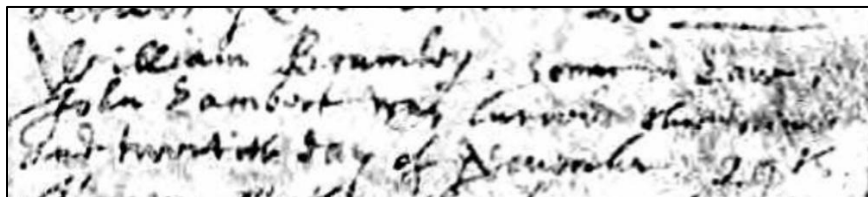 William Brumley, sonn in Law,
John Lambert was buried the nine
and twentith day of November 29th